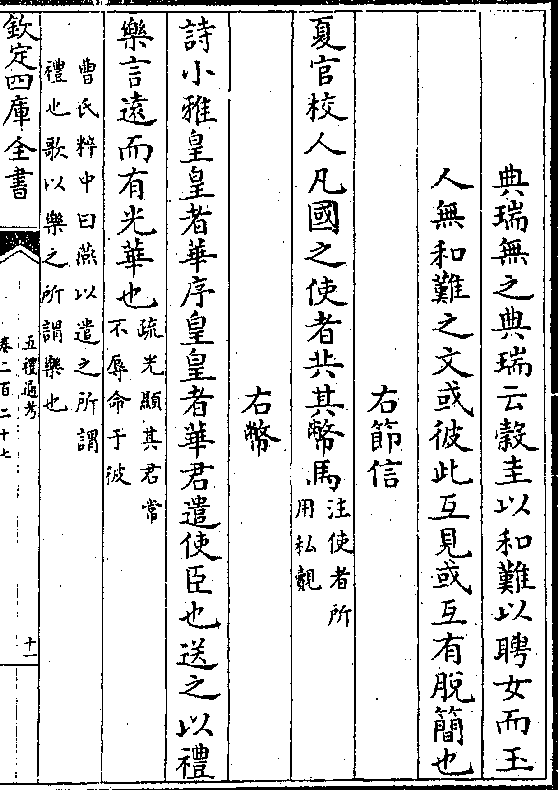 典瑞無之典瑞云穀圭以和難以聘女而玉
人無和難之文或彼此互見或互有脫簡也
右節信
夏官校人凡國之使者共其幣馬注使者所
用私覿
右幣
詩小雅皇皇者華序皇皇者華君遣使臣也送之以禮
樂言遠而有光華也疏光顯其君常
不辱命于彼
曹氏粹中曰燕以遣之所謂
禮也歌以樂之所謂樂也
欽定四庫全書
五禮通考
卷二百二十七
十一